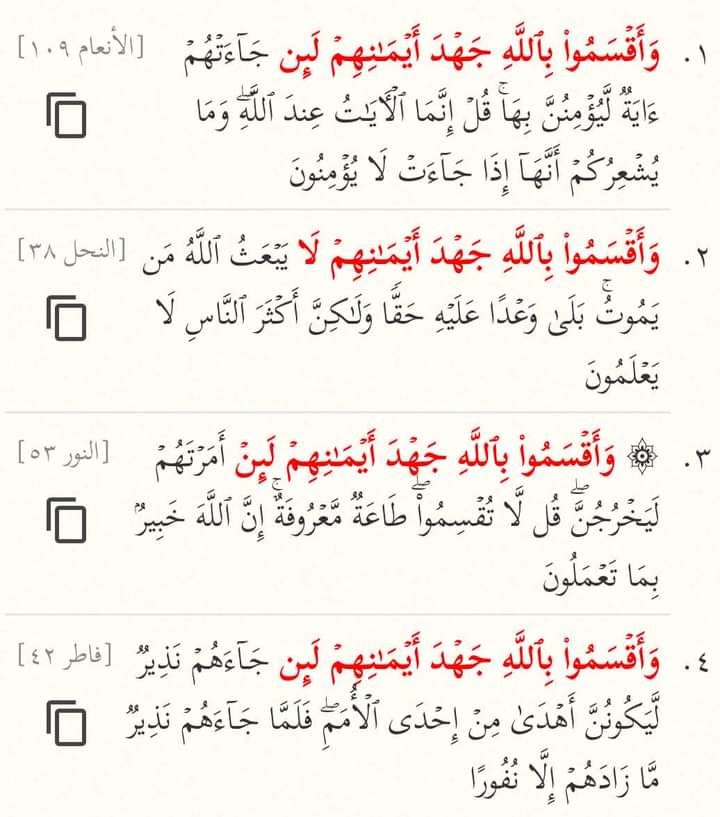 ١. وَأَقۡسَمُواْ بِٱللَّهِ جَهۡدَ أَيۡمَٰنِهِمۡ لَئِن جَآءَتۡهُمۡ [الأنعام ١٠٩]
ءَايَةٞ لَّيُؤۡمِنُنَّ بِهَاۚ قُلۡ إِنَّمَا ٱلۡأٓيَٰتُ عِندَ ٱللَّهِۖ وَمَا
يُشۡعِرُكُمۡ أَنَّهَآ إِذَا جَآءَتۡ لَا يُؤۡمِنُونَ
٢. وَأَقۡسَمُواْ بِٱللَّهِ جَهۡدَ أَيۡمَٰنِهِمۡ لَا يَبۡعَثُ ٱللَّهُ مَن [النحل ٣٨]
يَمُوتُۚ بَلَىٰ وَعۡدًا عَلَيۡهِ حَقّٗا وَلَٰكِنَّ أَكۡثَرَ ٱلنَّاسِ لَا
يَعۡلَمُونَ
٣. ۞ وَأَقۡسَمُواْ بِٱللَّهِ جَهۡدَ أَيۡمَٰنِهِمۡ لَئِنۡ أَمَرۡتَهُمۡ [النور ٥٣]
لَيَخۡرُجُنَّۖ قُل لَّا تُقۡسِمُواْۖ طَاعَةٞ مَّعۡرُوفَةٌۚ إِنَّ ٱللَّهَ خَبِيرُۢ
بِمَا تَعۡمَلُونَ
٤. وَأَقۡسَمُواْ بِٱللَّهِ جَهۡدَ أَيۡمَٰنِهِمۡ لَئِن جَآءَهُمۡ نَذِيرٞ [فاطر ٤٢]
لَّيَكُونُنَّ أَهۡدَىٰ مِنۡ إِحۡدَى ٱلۡأُمَمِۖ فَلَمَّا جَآءَهُمۡ نَذِيرٞ
مَّا زَادَهُمۡ إِلَّا نُفُورًا